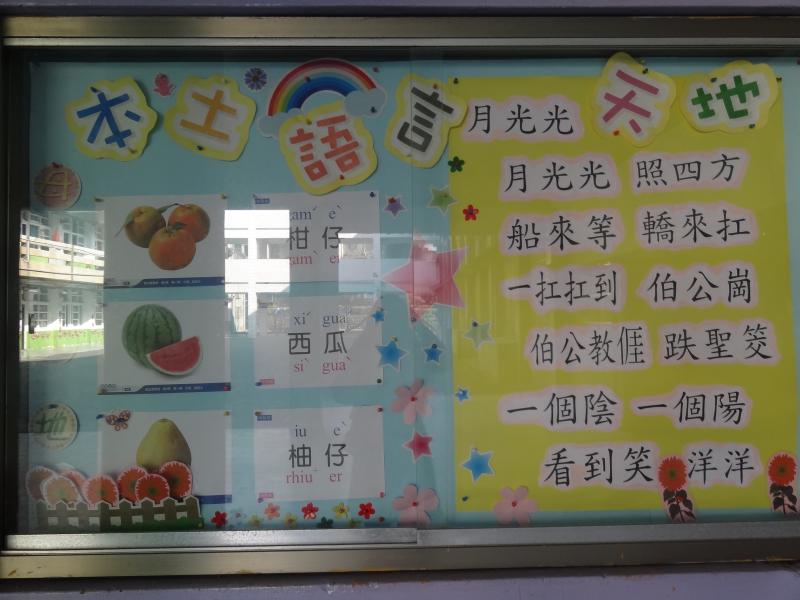 本土語言天地
母
地
gamˊ eˋ
柑仔
gamˋ er
xiˊ guaˋ
西瓜
siˋ guaˋ
iu eˋ
柚仔
rhiuˋ er
月光光
月光光 照四方
船來等 轎來扛
一扛扛到 伯公崗
伯公教𠊎 跌聖筊
一個陰 一個陽
看到笑洋洋